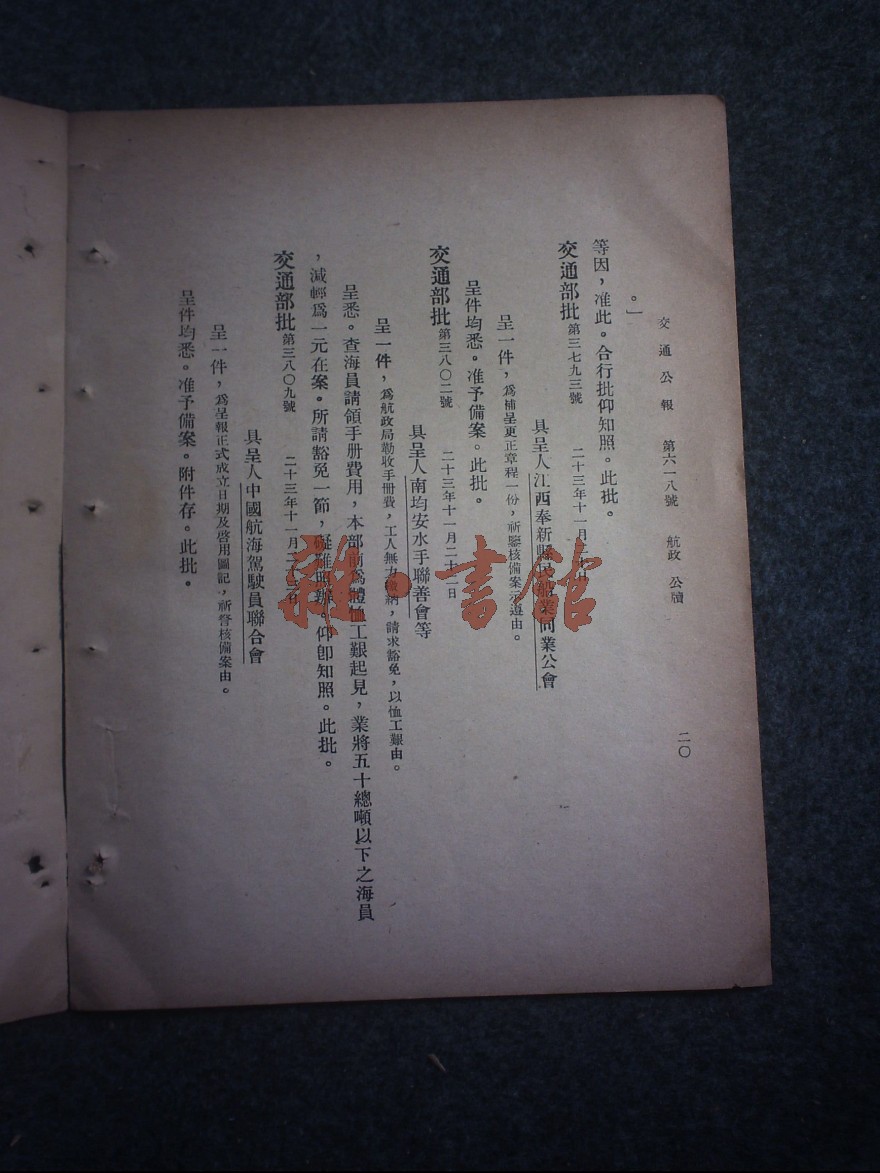 交通公報 第六一八號 航政 公牘 二〇
。」
等因，准此。合行批仰知照。此批。
交通部批 第三七九三號 二十三年十一月 日
具呈人江西奉新縣民船業同業公會
呈一件，爲補呈更正章程一份，祈鑒核備案示遵由。
呈件均悉。准予備案。此批。
交通部批 第三八〇二號 二十三年十一月二十二日
具呈人南均安水手聯善會等
呈一件，爲航政局勒收手册費，工人無力繳納，請求豁免，以恤工艱由。
呈悉。查海員請領手册費用，本部前爲體恤工艱起見，業將五十總噸以下之海員
，減輕爲一元在案。所請豁免一節，礙難照辦。仰卽知照。此批。
交通部批 第三八〇九號 二十三年十一月二十 日
具呈人中國航海駕駛員聯合會
呈一件，爲呈報正式成立日期及啓用圖記，祈詧核備案由。
呈件均悉。准予備案。附件存。此批。
雜·書館